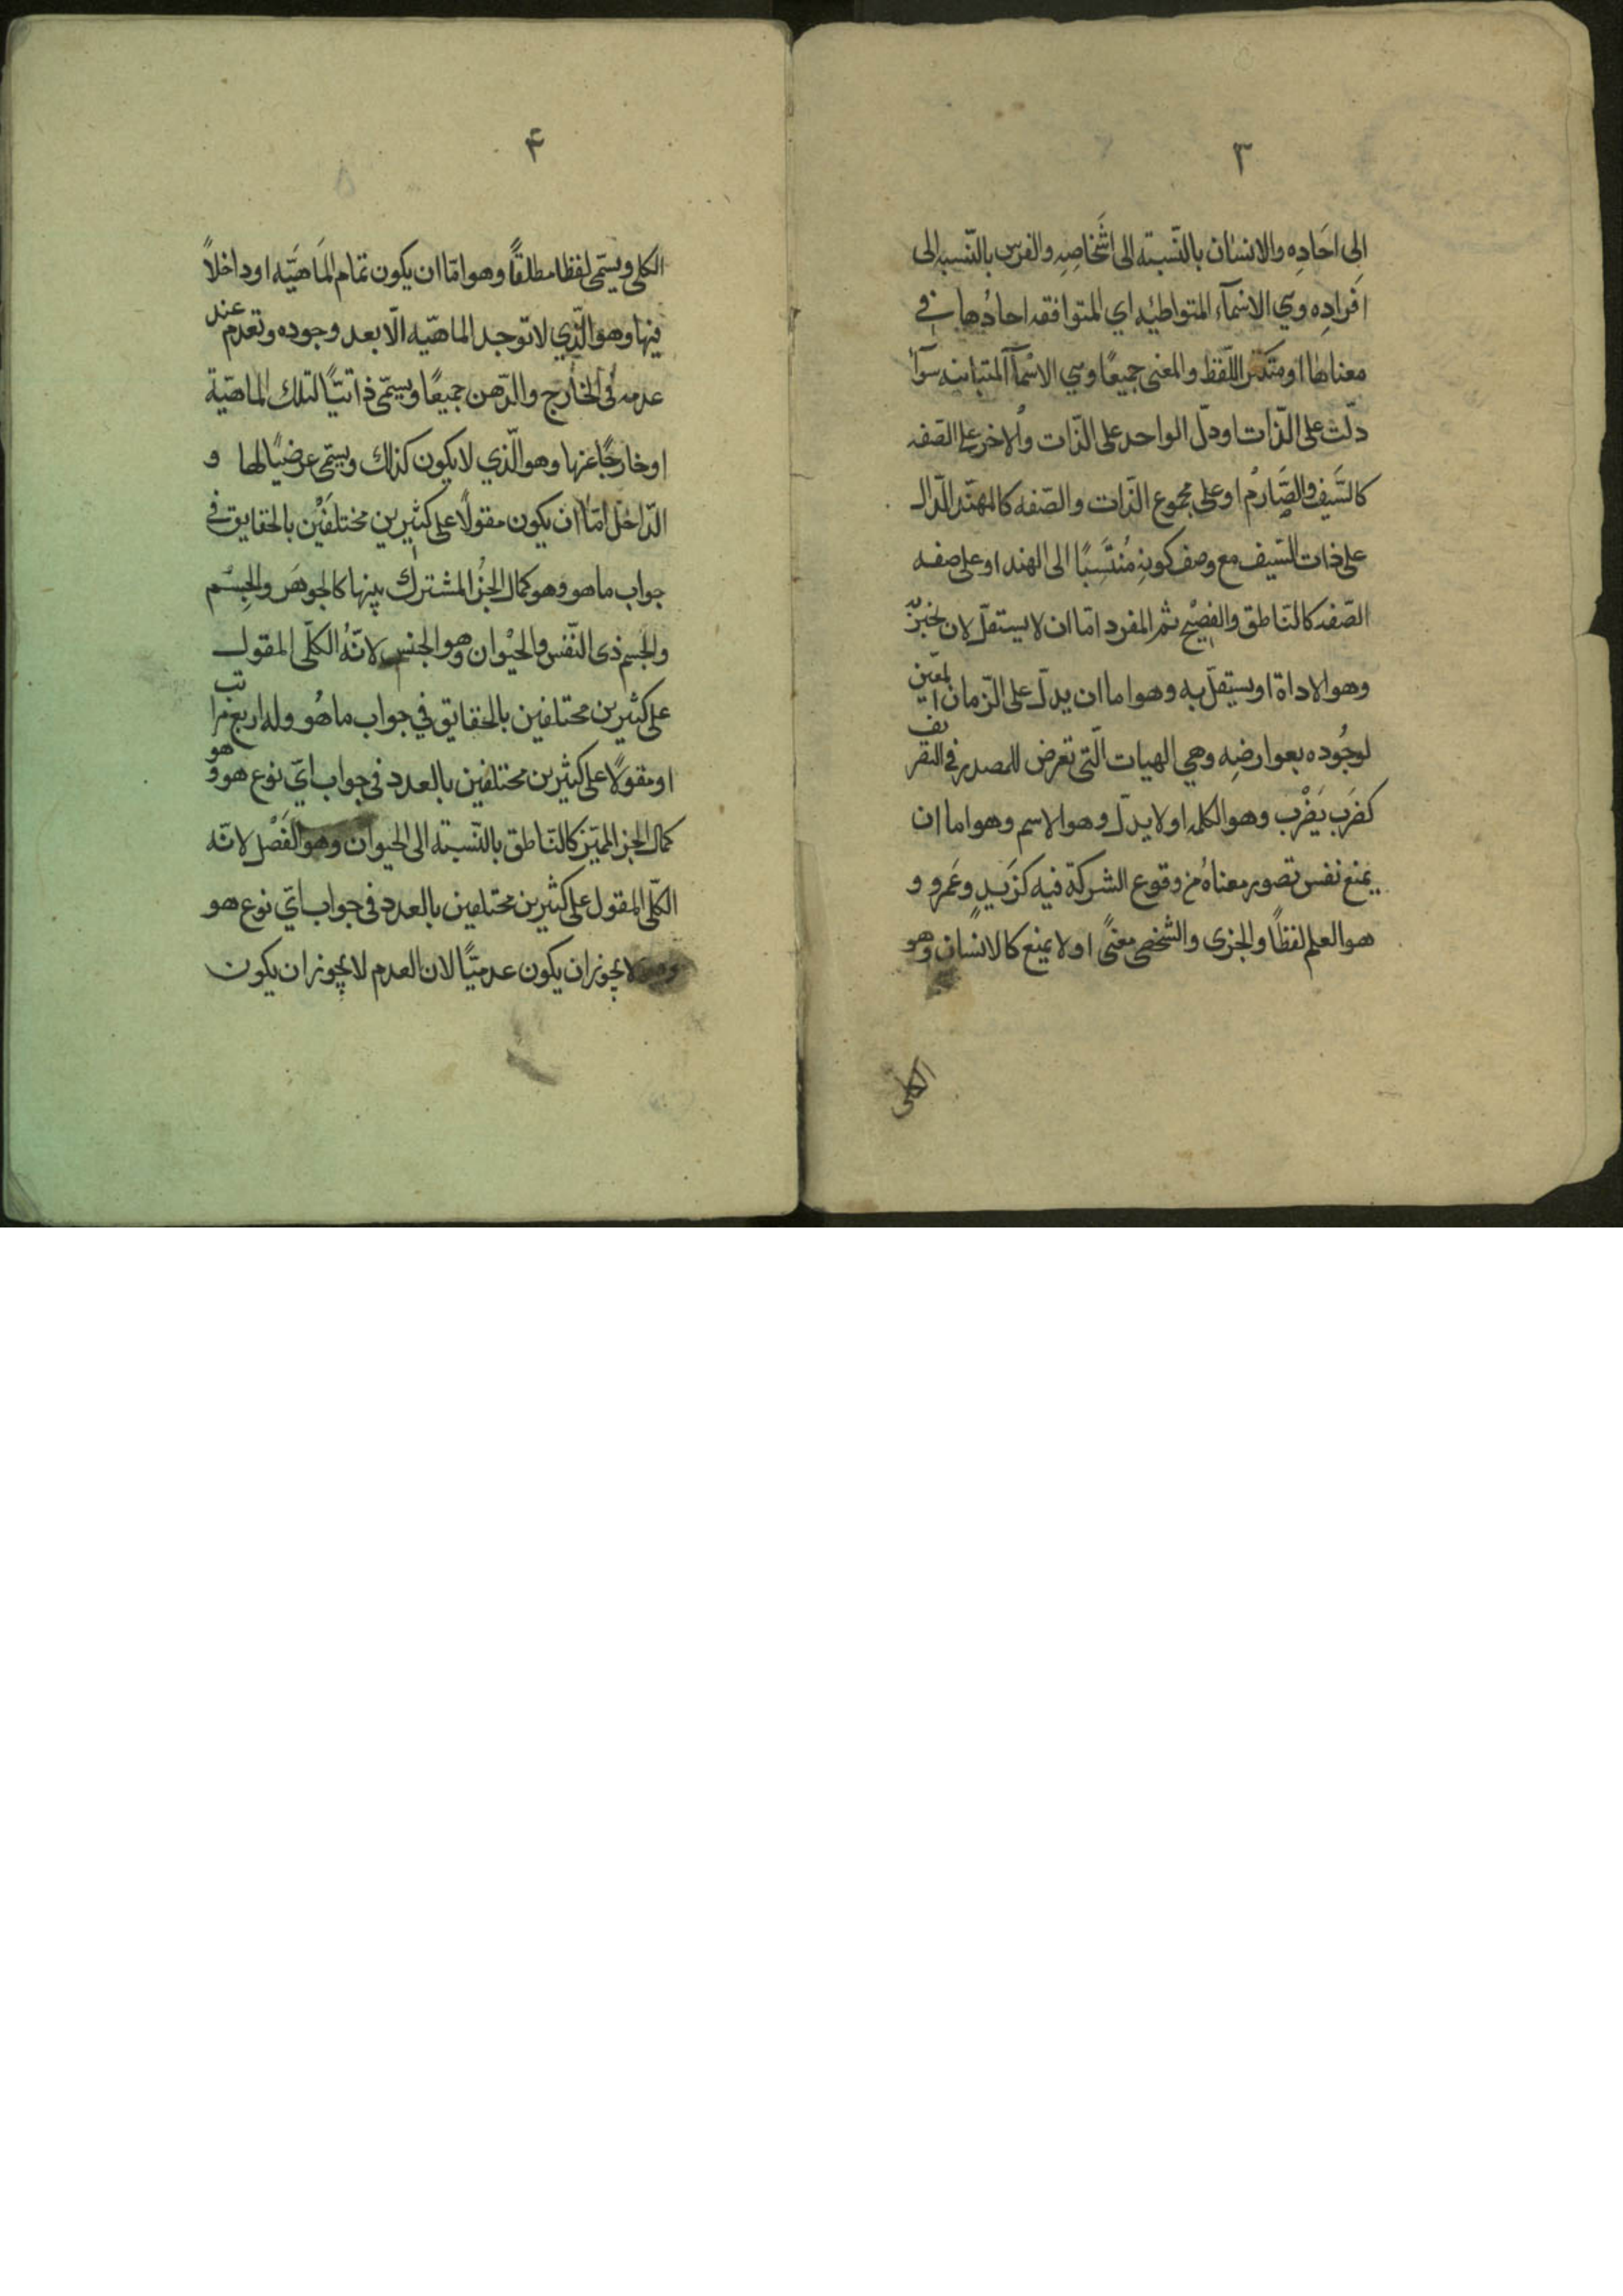 ٣
الى احَادِه والانسان بالنّسبته الى اشَخاصِهِ والفرس بالنّسبه الى
افرادِه وهي الاسمآء المتواطئيه اي المتوافقه احادُها في
معناها او متكثر اللّفظ والمعنى جميعًا وهي الاسْمآ المتباينه سوآء
دلّت على الذّات او دلّ الواحد على الذّات والاخر على الصّفه
كالسَّيف والصَّارم او على مجموع الذّات والصّفه كالمهنّد الدّال
على ذات السّيف مع وصف كونِهِ مُنتَسِبًا الى الهند او على صفه
الصّفه كالنّاطق والفصِيْح ثم المفرد امّا ان لا يستقلّ لان يخبر به
وهو الاداة او يستقلّ به وهو اما ان يدلّ على الزّمان المعّين
لوجُوده بعوارضِه وهي الهيات الّتي تعرض للمصدر في التصريف
كضَرَب يَضْرِب وهو الكلمه او لا يدّل وهو الاسم وهو اما ان
يمنع نفس تصور معناهُ من وقوع الشركة فيه كزَيدٍ وعَمرو و
هو العلم لفظًا والجزى والشّخصى معنًى او لا يمنع كالانسان وهو
الكلى
۴
الكلى ويسمّى لفظا مطلقًا وهو امّا ان يكون تمام المَاهيَّه او داخلاً
فيها وهو الّذي لا توجد الماهيّه الّا بعد وجوده وتعدم عند
عدمه في الخارج والذّهن جميعًا ويسمّى ذاتيًّا لتلك الماهيّة
او خارجًا عنها وهو الّذي لا يكون كذلك ويسمّى عرضيًا لها و
الدّاخل امّا ان يكون مقولًا على كثيرين مختلفَيْن بالحقايق في
جواب ما هو وهو كمال الجزُ المشترك بينها كالجوهَر والجِسْم
والجسم ذى النّفس والحيْوان وهو الجنس لانّهُ الكلّى المقول
على كثيرين مختلفين بالحقايق في جواب ما هُو وله اربع مراتب
او مقولًا على كثيرين مختلفين بالعدد في جواب ايّ نوع هو وهو
كمال الجز المميّز كالنّاطق بالنّسبته الى الحيوان وهو الفَصْل لانّه
الكلّى المقول على كثيرين مختلفين بالعدد في جواب ايّ نوع هو
لا يجوز ان يكون عدميًّا لان العدم لا يجوز ان يكون